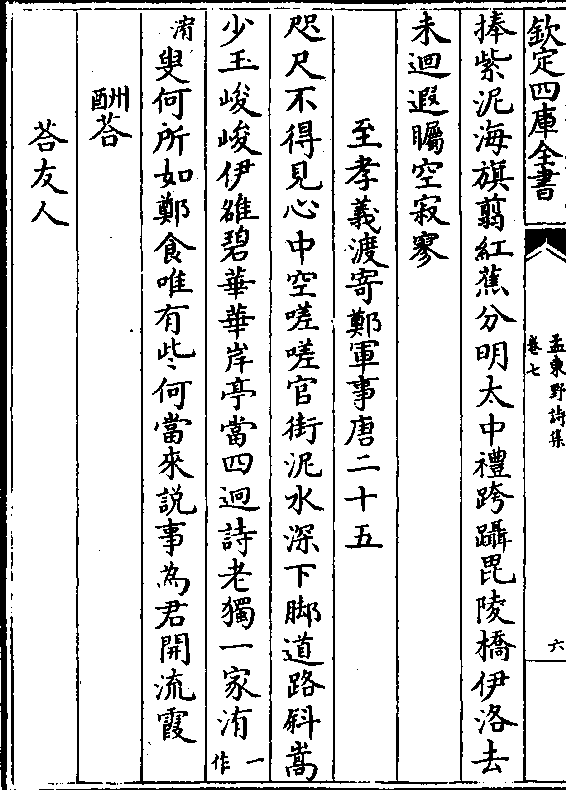 欽定四庫全書
孟東野詩集
卷七
六
捧紫泥海旗翦紅蕉分明太中禮跨躡毘陵橋伊洛去
未迴遐矚空寂寥
至孝義渡寄鄭軍事唐二十五
咫尺不得見心中空嗟嗟官街泥水深下脚道路斜嵩
少玉峻峻伊雒碧華華岸亭當四迥詩老獨一家洧一作
淯叟何所如鄭食唯有些何當來説事為君開流霞
酬荅
荅友人